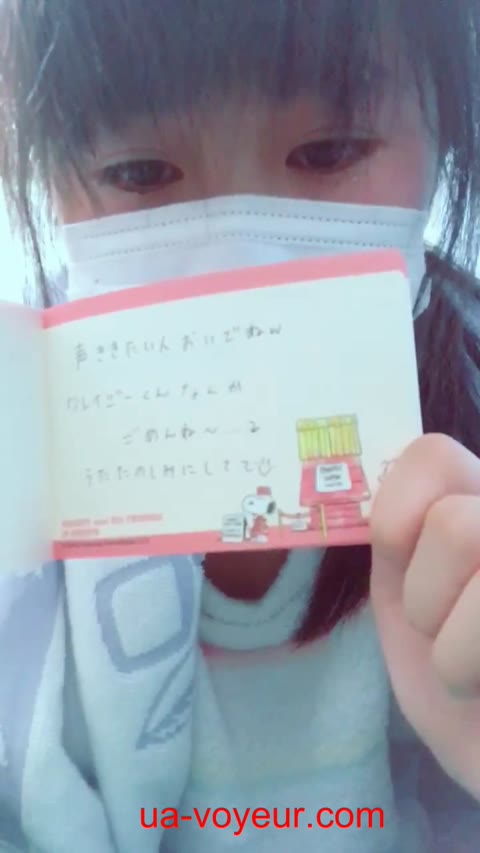 声ききたい人おいでねw
クレイジーくんなんか
ごめんね〜....2
うたたのしみにしてて
SNOOPY and His FRIENDS
ua-voyeur.com